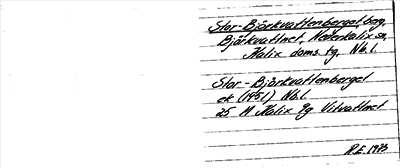 Stor-Björkvattenberget, berg,
Björkvattnet, Nederkalix sn,
Kalix doms. tg, Nb. l.
Stor-Björkvattenberget
ek (1951) Nb. l.
25 M Kalix 9g Vitvattnet
R.E. 1973